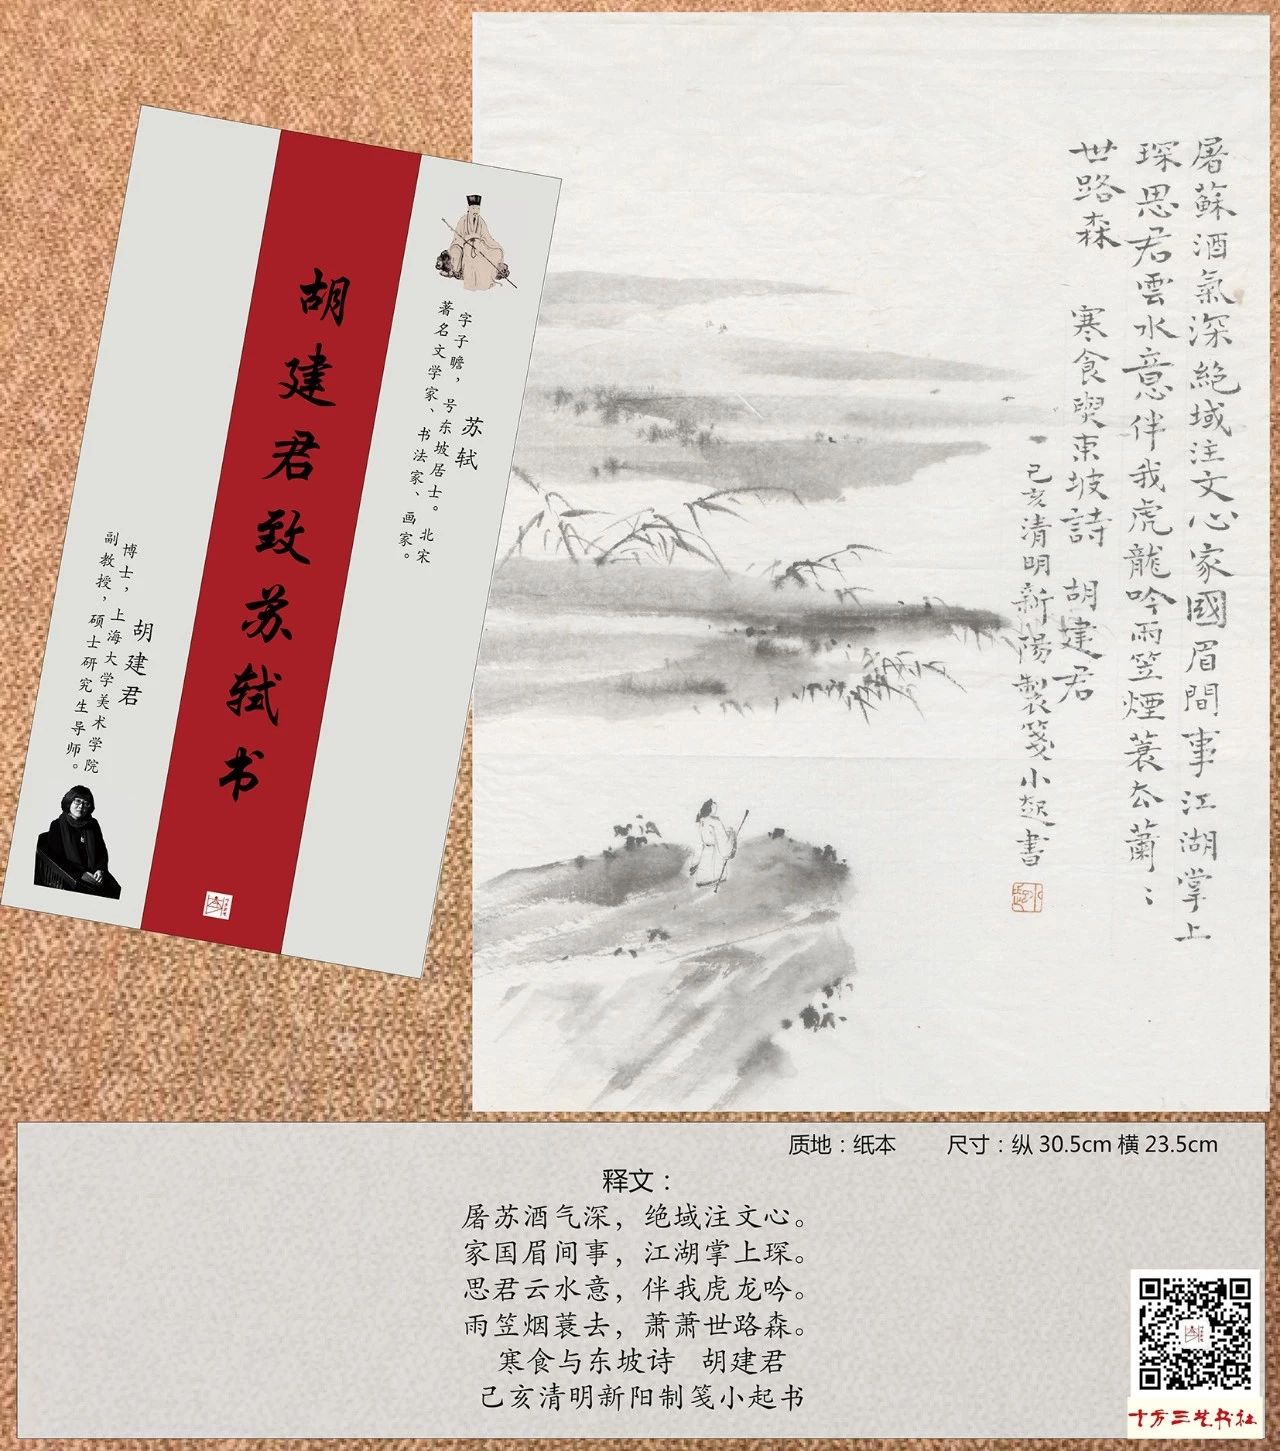 胡建君致苏轼书
苏轼
字子瞻，号东坡居士。北宋
著名文学家、书法家、画家。
胡建君
博士，上海大学美术学院
副教授，硕士研究生导师。
屠蘇酒氣深絕域注文心家國眉間事江湖掌上
琛思君雲水意伴我虎龍吟雨笠煙蓑去蕭〻
世路森　寒食與東坡詩　胡建君
己亥清明新陽製箋小起書
质地：纸本　尺寸：纵 30.5cm 横 23.5cm
释文：
屠苏酒气深，绝域注文心。
家国眉间事，江湖掌上琛。
思君云水意，伴我虎龙吟。
雨笠烟蓑去，萧萧世路森。
寒食与东坡诗 胡建君
己亥清明新阳制笺小起书
十方三艺书社